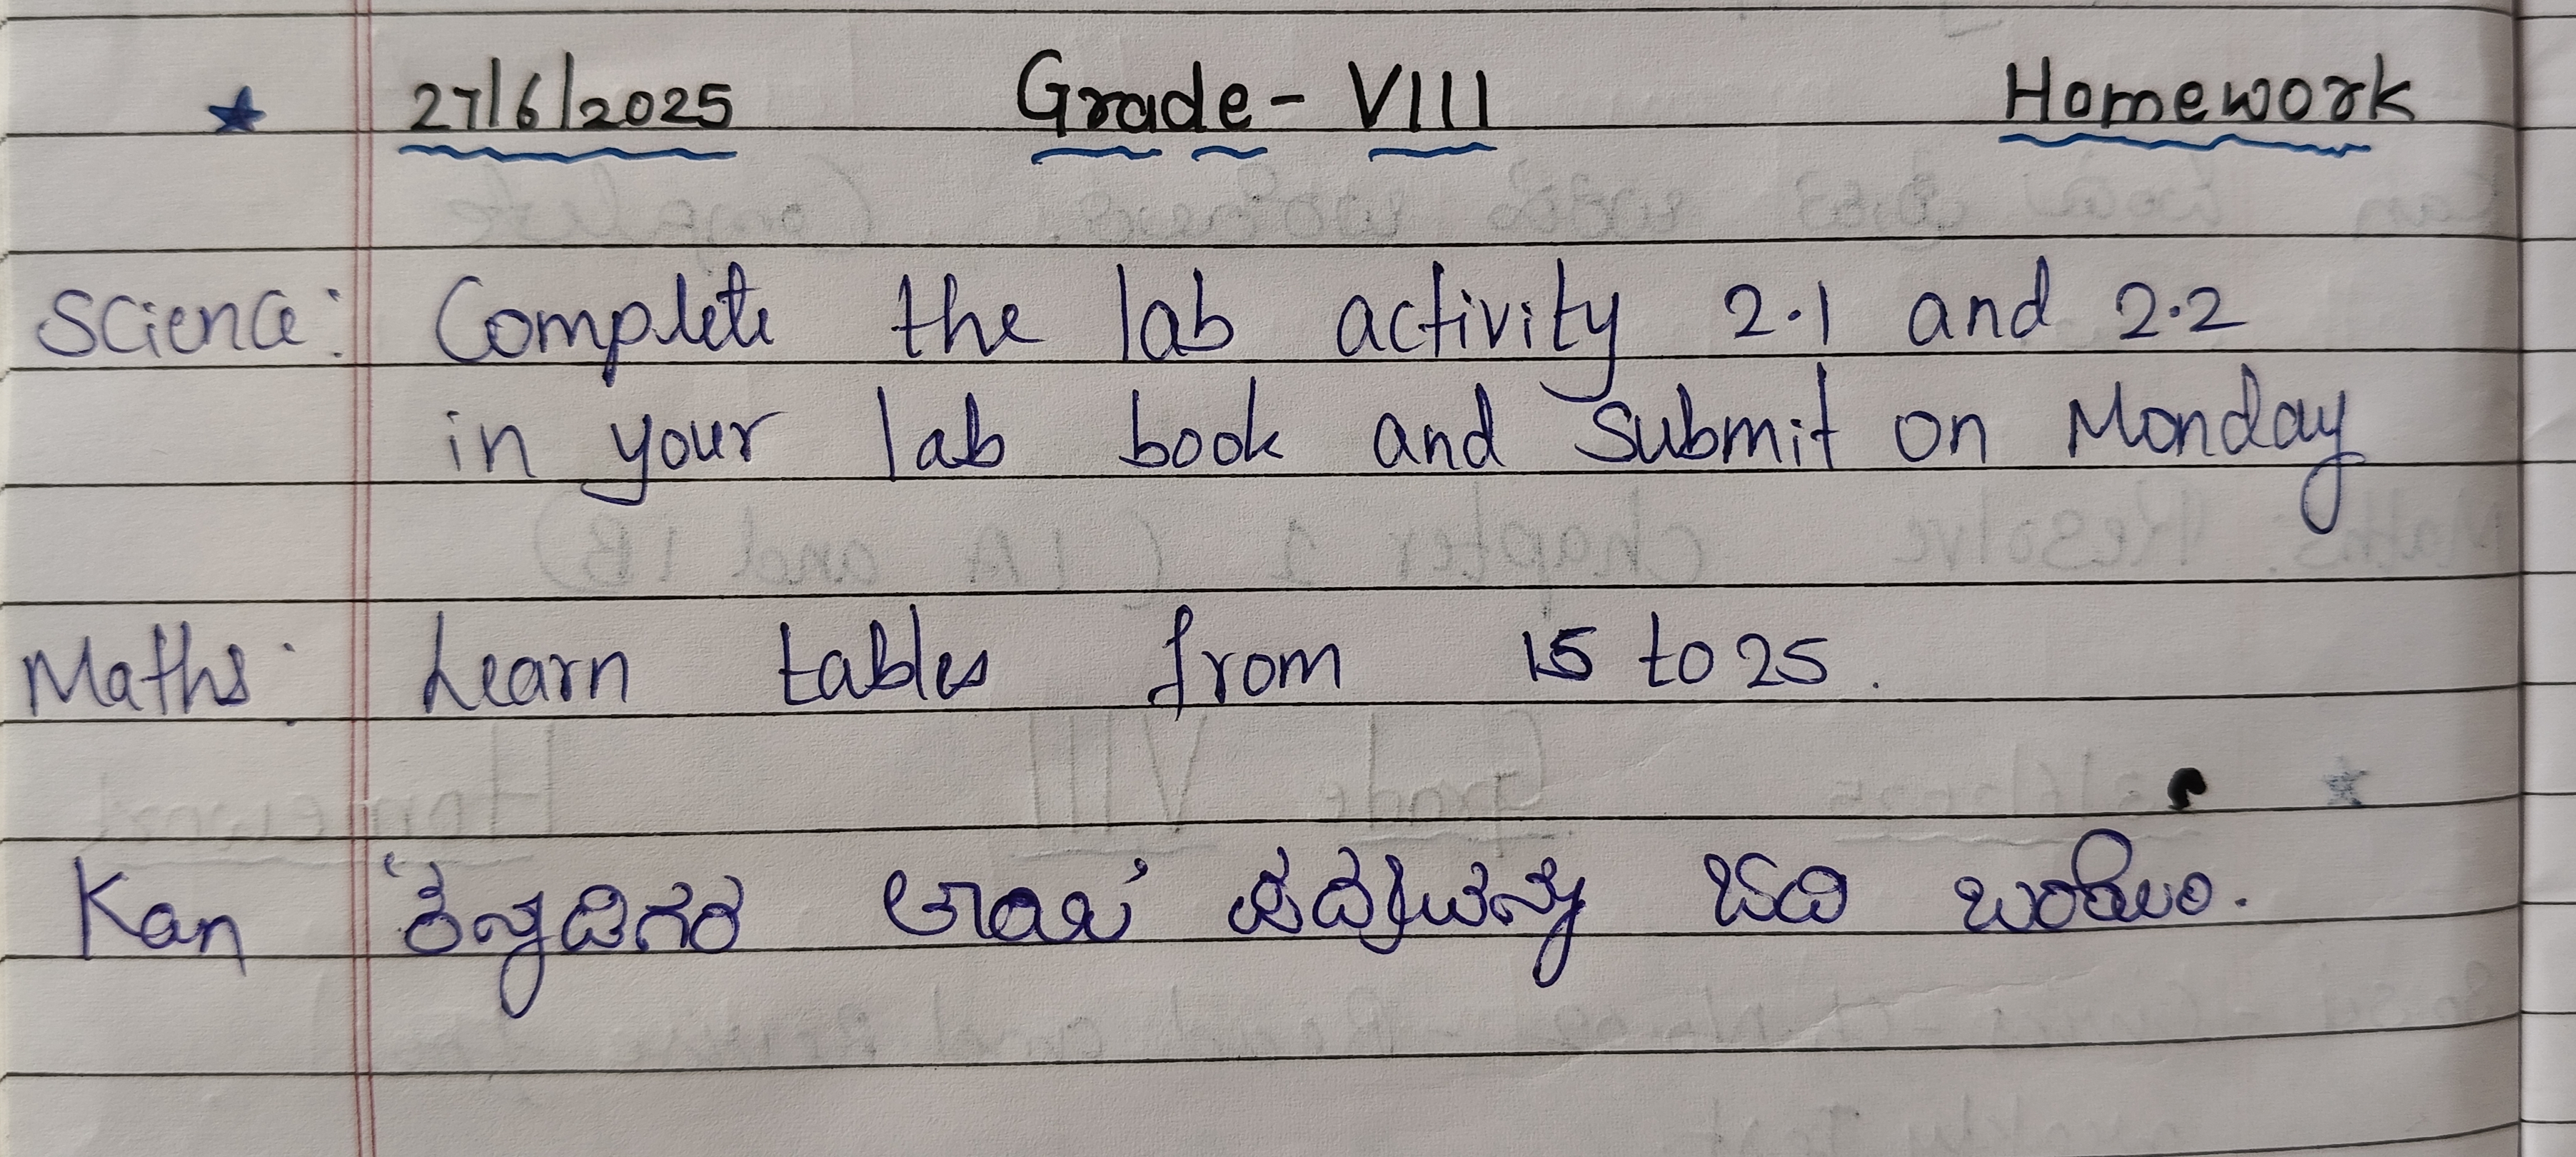 ★ 27/6/2025 Grade - VIII Homework
Science: Complete the lab activity 2.1 and 2.2
in your lab book and submit on Monday
Maths: Learn tables from 15 to 25.
Kan 'ಕನ್ನಡಿಗರ ತಾಯಿ' ಪದ್ಯವನ್ನು ಓದಿ ಬರೆಯಿರಿ.